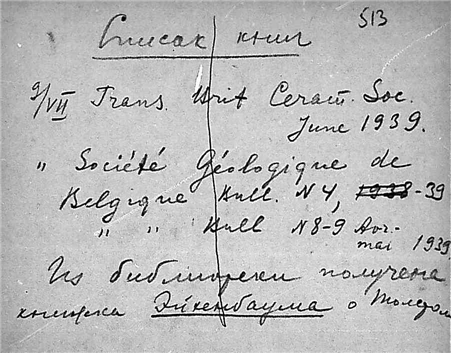 513
Список книг
9/VII Trans. Brit Ceram. Soc.
June 1939.
" Société Géologique de
Belgique Bull. N4, 1938-39
" " Bull N8-9 Avr.-
mai 1939
Из библиотеки получена
книжка Эйхенбаума о Толстом